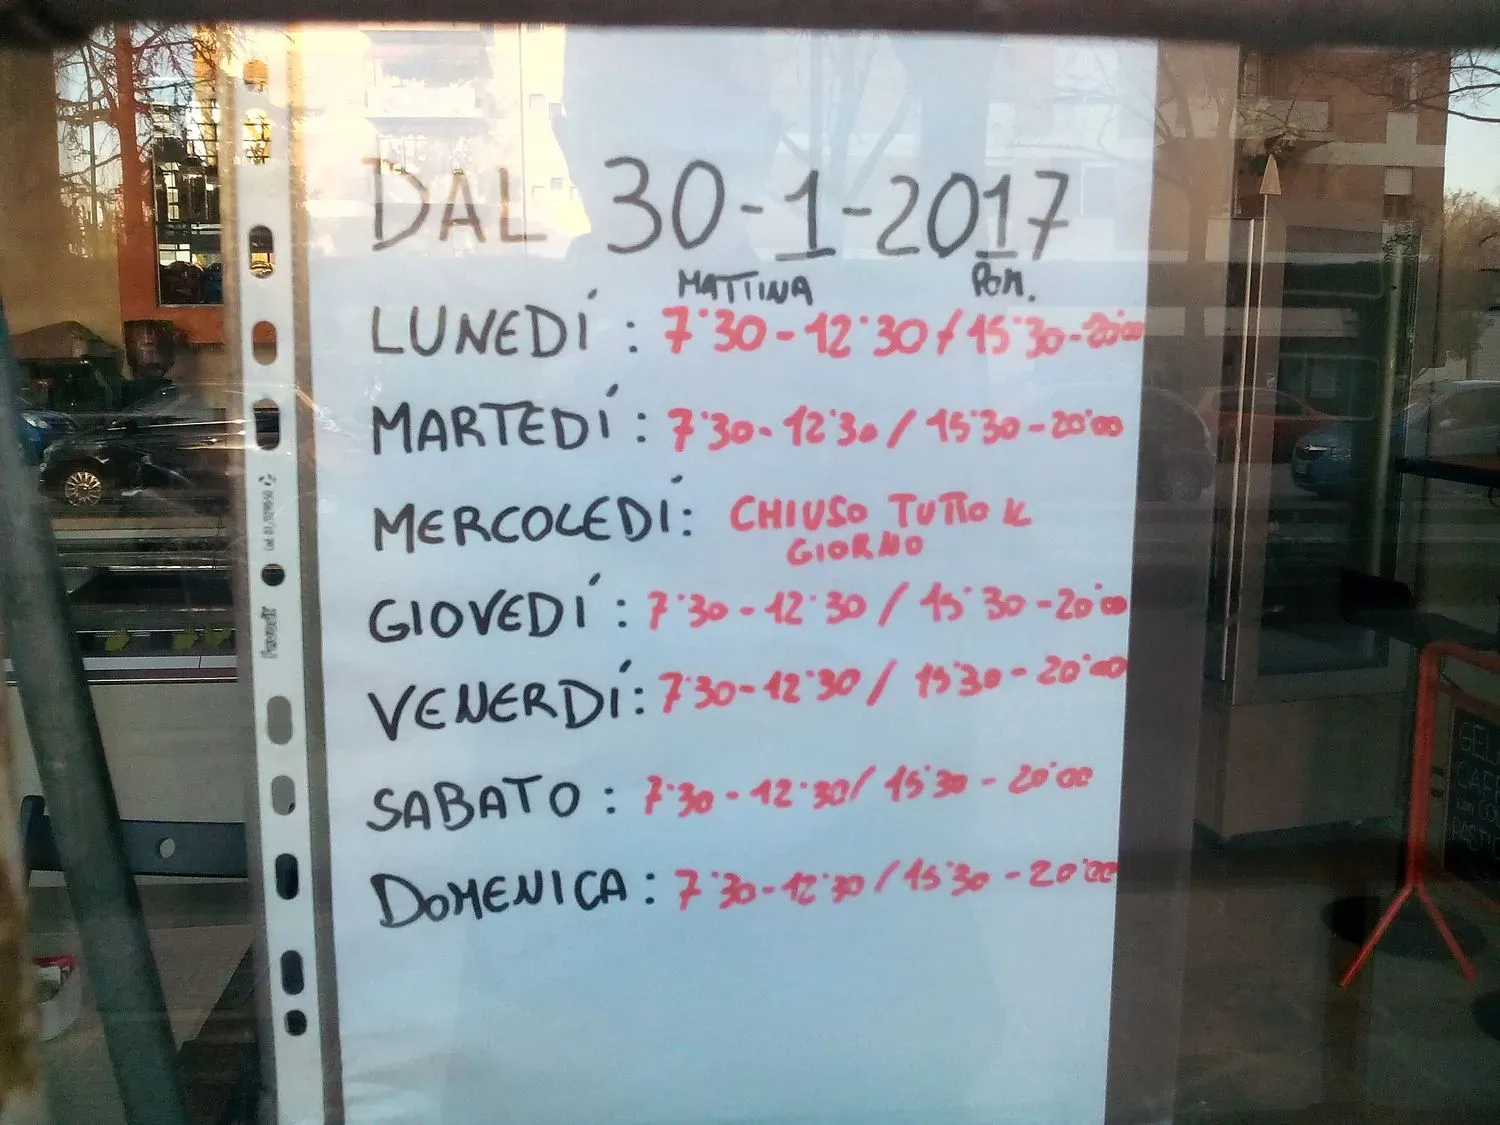 DAL 30-1-2017
MATTINA POM.
LUNEDÍ : 7˙30 - 12˙30 / 15˙30 - 20˙00
MARTEDÍ : 7˙30 - 12˙30 / 15˙30 - 20˙00
MERCOLEDÍ : CHIUSO TUTTO IL
GIORNO
GIOVEDÍ : 7˙30 - 12˙30 / 15˙30 - 20˙00
VENERDÍ : 7˙30 - 12˙30 / 15˙30 - 20˙00
SABATO : 7˙30 - 12˙30 / 15˙30 - 20˙00
DOMENICA : 7˙30 - 12˙30 / 15˙30 - 20˙00